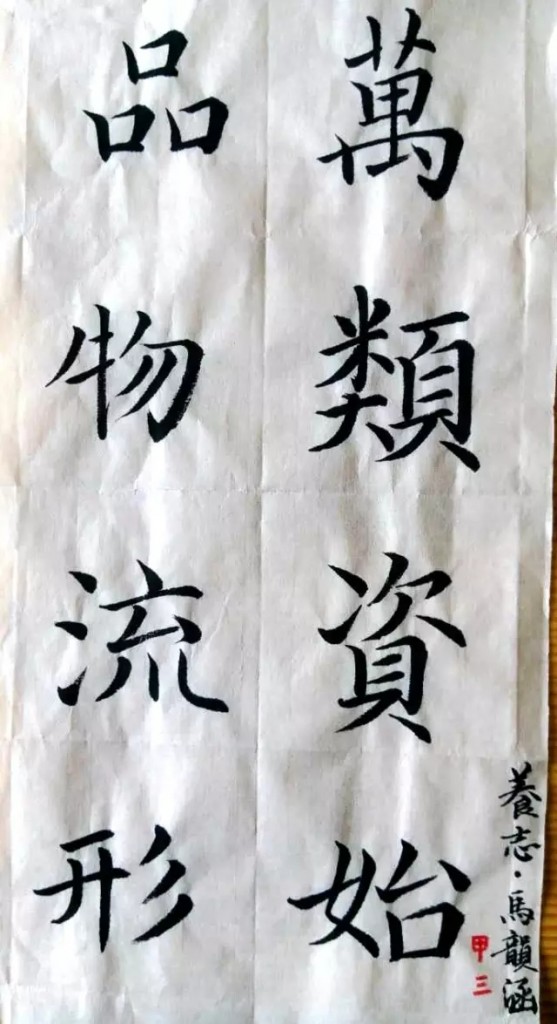 萬類資始
品物流形
養志·馬韻涵
甲三